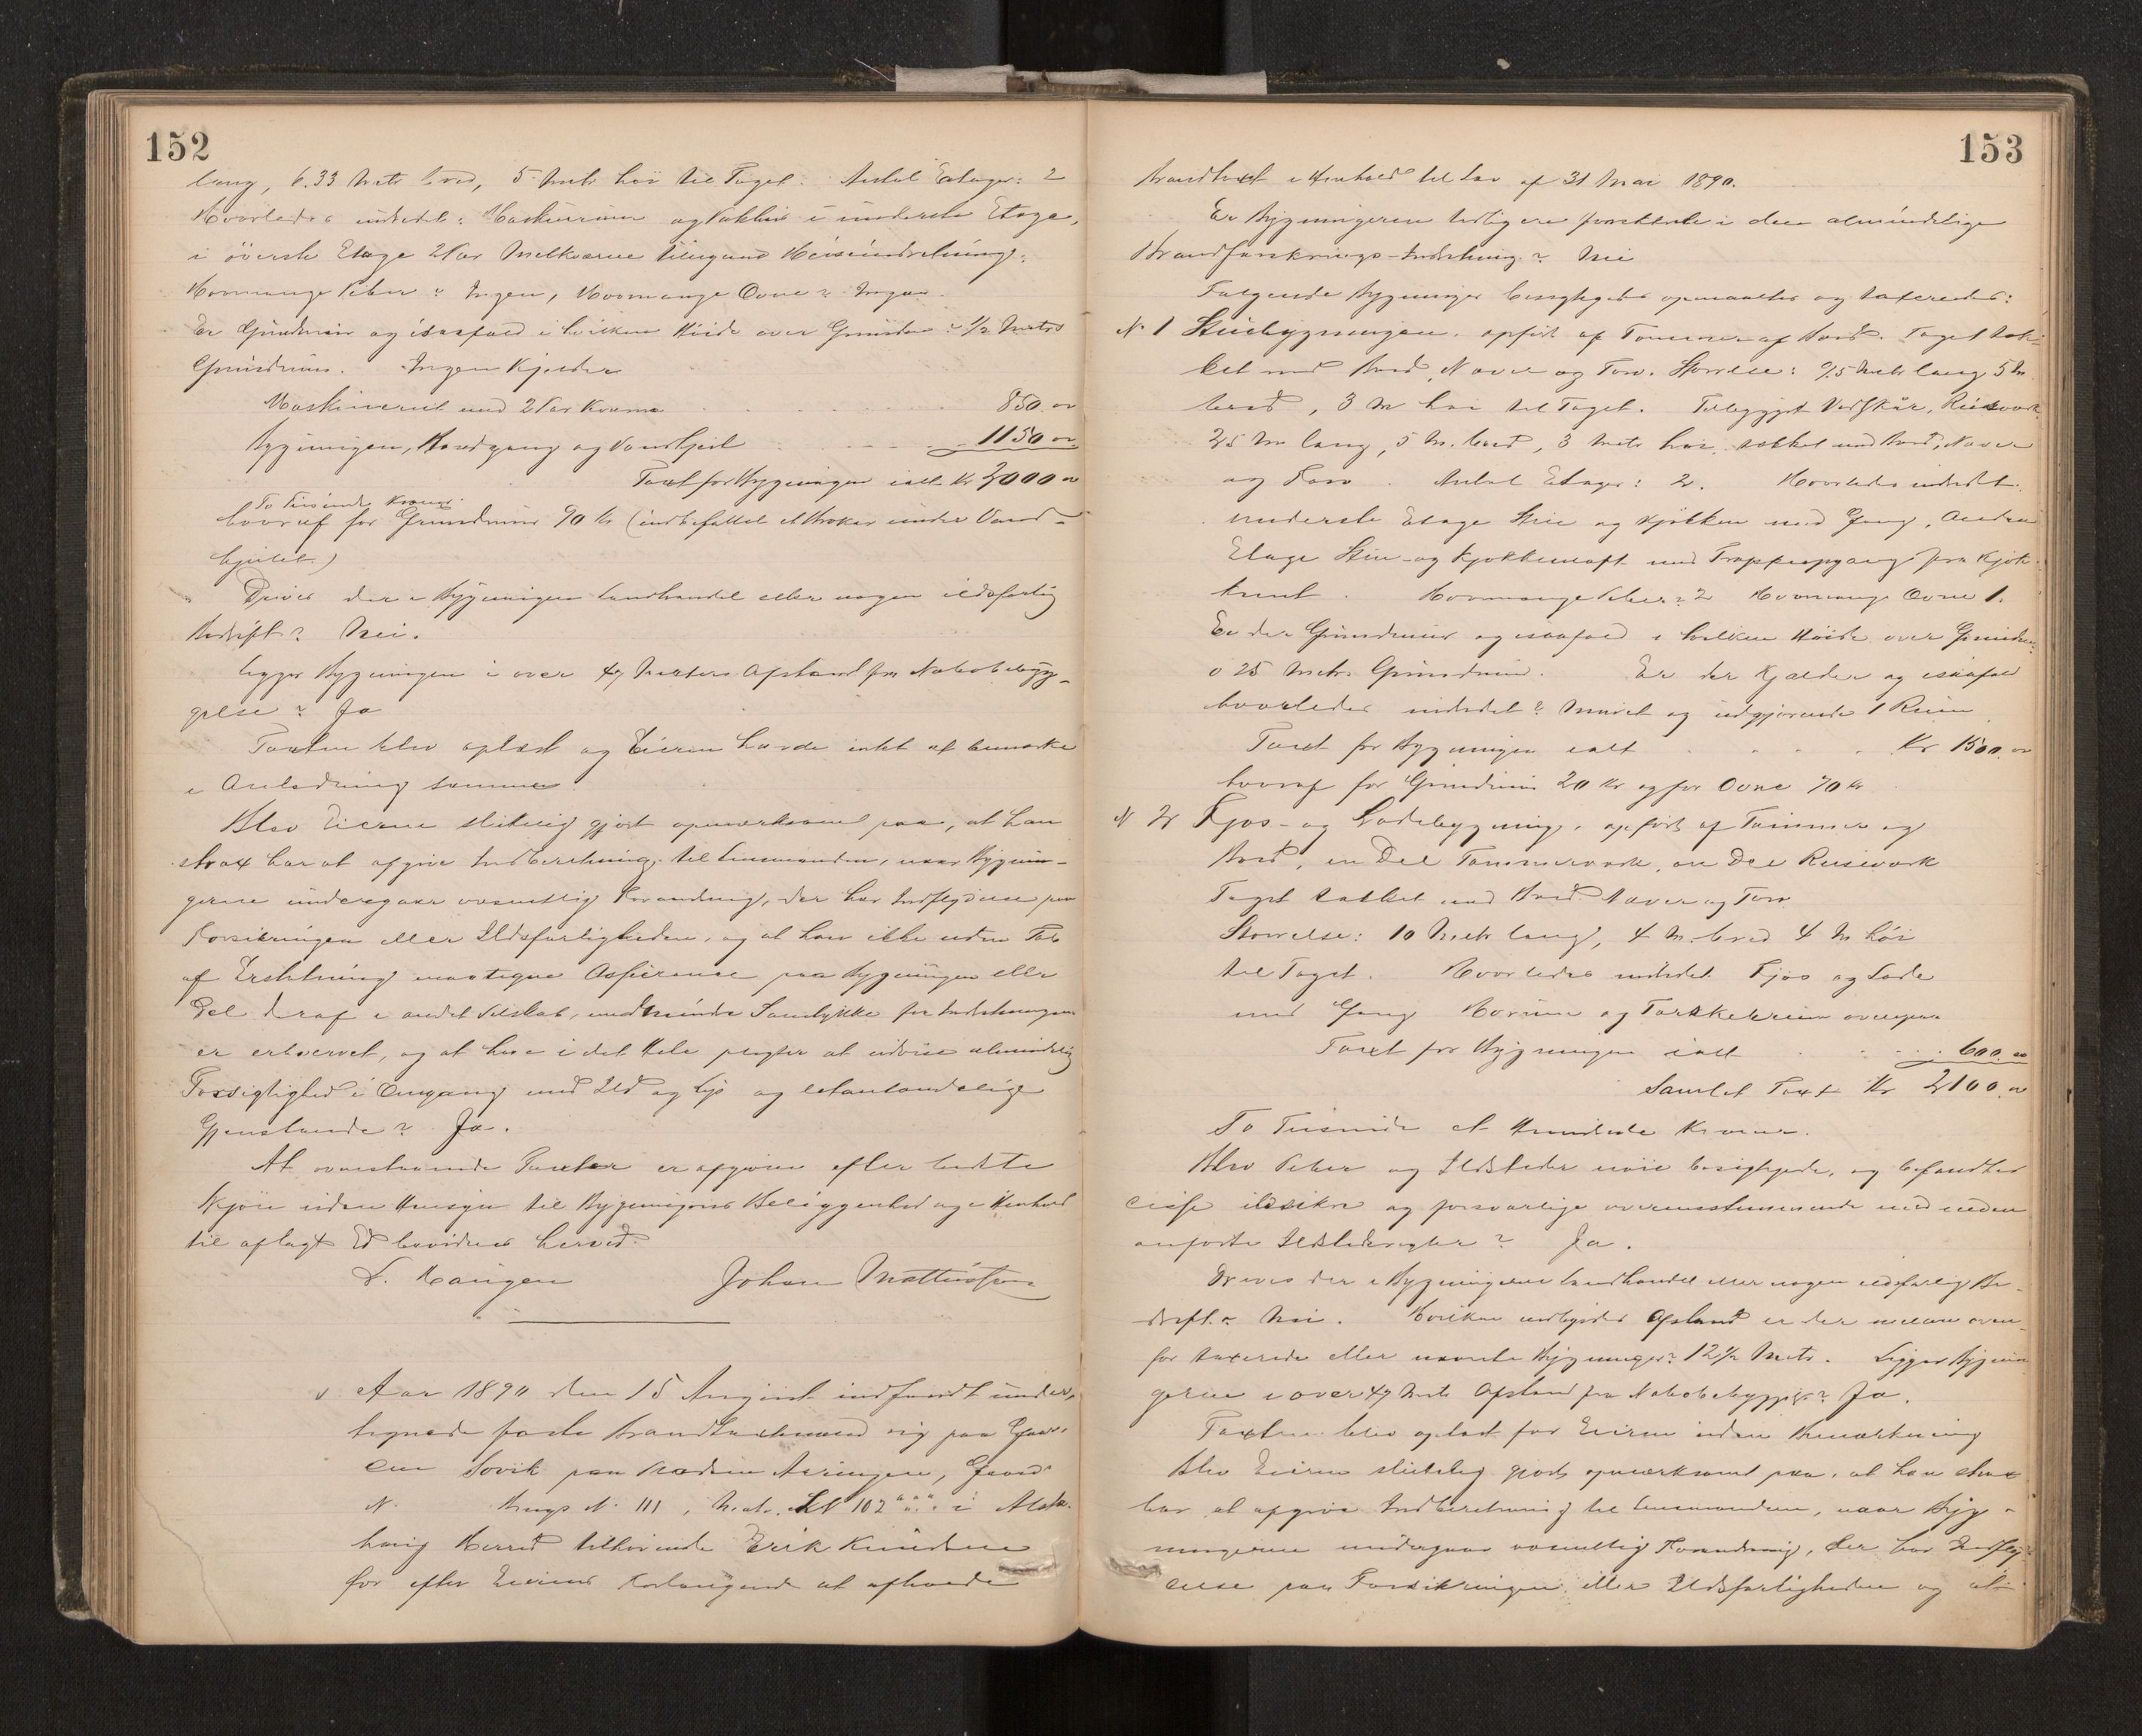 152
lang, 6.33 Metr bred, 5 Metr høi til Taget. Antal Etager: 2
Hvorledes indredet: Maskinrum og Pakhus i underste Etage,
i överste Etage 2 Par Melkværne tilligemed Heiseindretning.
Hvormange Piber? Ingen, Hvormange Ovne? Ingen.
Er Grundmur og isaafald i hvilken Höide over Grunden? 1/2 Metrs
Grundmur. Ingen Kjelder
Maskineriet med 2 Par Kværne 850. "
Bygningen, Vandgang og Vandhjul 1150 "
Taxt for Bygningen ialt Kr 2000 "
To Tusinde Kroner.
hvoraf for Grundmur 90 Kr (indbefattet et Brokar under Vand-
hjulet.)
Drives der i Bygningen Landhandel eller nogen ildsfarlig
Bedrift? Nei.
Ligger Bygningen i over 47 Meters Afstand fra Nabobebyg-
gelse? Ja
Taxten blev oplæst og Eieren havde intet at bemærke
i Anledning samme.
Blev Eieren sluttelig gjort opmærksom paa, at han
strax har at afgive Indberetning til Lensmanden, naar Bygnin-
gerne undergaar væsentlig Forandring, der har Indflydelse paa
Forsikringen eller Ildsfarligheden, og at han ikke uden Tab
af Erstatning maa tegne Assurance paa Bygningen eller
Del deraf i andet Selskab, medmindre Samtykke fra Indretningen
er erhvervet, og at han i det Hele pligter at udvise almindelig
Forsigtighed i Omgang med Ild og Lys og letantændelige
Gjenstande? Ja.
At ovenstaaende Taxter er afgivne efter bedste
Skjön uden Hensyn til Bygningens Beliggenhed og i Henhold
til aflagt Ed bevidnes herved.
L. Haugen Johan Mattisen
Aar 1890 den 15 August indfandt under-
tegnede faste Brandtaxtmænd sig paa Gaar-
den Sovik paa Pladsen Aaringen, Gaards
N. Brugs N. 111, Matr. Lb 102 i Alsta-
haug Herred tilhørende Erik Knudsen
for efter Eierens Forlangende at afholde
153
Brandtaxt i Henhold til Lov af 31 Mai 1890.
Er Bygningerne tidligere forsikrede i den almindelige
Brandforsikrings-Indretning? Nei
Følgende Bygninger besigtigedes opmaaltes og taxeredes:
N 1 Stuebygningen, opfört af Tømmer af Bord. Taget tæk-
ket med Bord, Næver og Torv. Størrelse: 7.5 Metr lang 5 M.
bred, 3 M høi til Taget. Tilbygget Vedskur, Reisværk
25 M lang, 5 M. bred, 3 Metr høi, tækket med Bord, Næver
og Torv. Antal Etager: 2. Hvorledes indredet.
underste Etage Stue og Kjökken med Gang, Anden
Etage Stue- og Kjökkenloft med Trappeopgang fra Kjök-
kenet. Hvormange Piber? 2 Hvormange Ovne 1.
Er der Grundmur og isaafald i hvilken Höide over Grunden?
0 25 Metr. Grundmur. Er der Kjælder og isaafald
hvorledes indredet? Muret og udgjørende 1 Rum
Taxt for Bygningen ialt Kr 1500 "
hvoraf for Grundmur 20 Kr og for Ovne 70 Kr
N 2 Fjos- og Ladebygning, opfört af Tömmer og
Bord, en Del Tømmerværk, en Del Reisverk
Taget tækket med Bord Næver og Torv
Størrelse: 10 Metr lang, 4 M. bred 4 M höi
til Taget. Hvorledes indredet Fjös og Lade
med Gang Hörum og Tørkerum ovenpaa
Taxt for Bygningen ialt 600 "
Samlet Taxt Kr 2100 "
To Tusinde et Hundrede Kroner.
Blev Piber og Ildsteder nöie besigtigede, og befandtes
disse ildsikre og forsvarlige overensstemmende med neden
anførte Ildstedsregler? Ja.
Drives der i Bygningerne Landhandel eller nogen ildsfarlig Be-
drift? Nei. Hvilken indbyrdes Afstand er der mellem oven-
for taxerede eller nævnte Bygninger? 12 1/2 Metr. Ligger Bygnin
gerne i over 47 Metr Afstand fra Nabobebyggelse? Ja.
Taxten blev oplæst for Eieren uden Bemærkning
Blev Eieren sluttelig gjort opmærksom paa, at han strax
har at afgive Indberetning til Lensmanden, naar Byg-
ningerne undergaar væsentlig Forandring, der har Indfly-
delse paa Forsikringen eller Ildsfarligheden og at